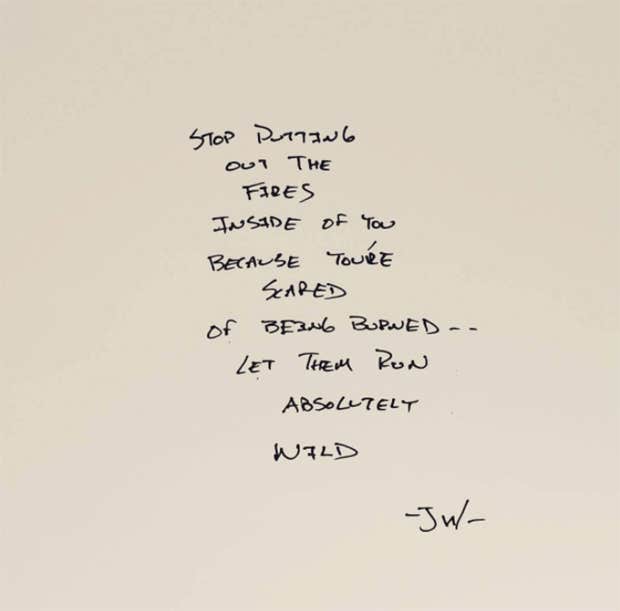 STOP PUTTING
OUT THE
FIRES
INSIDE OF YOU
BECAUSE YOU'RE
SCARED
OF BEING BURNED--
LET THEM RUN
ABSOLUTELY
WILD
-JW-